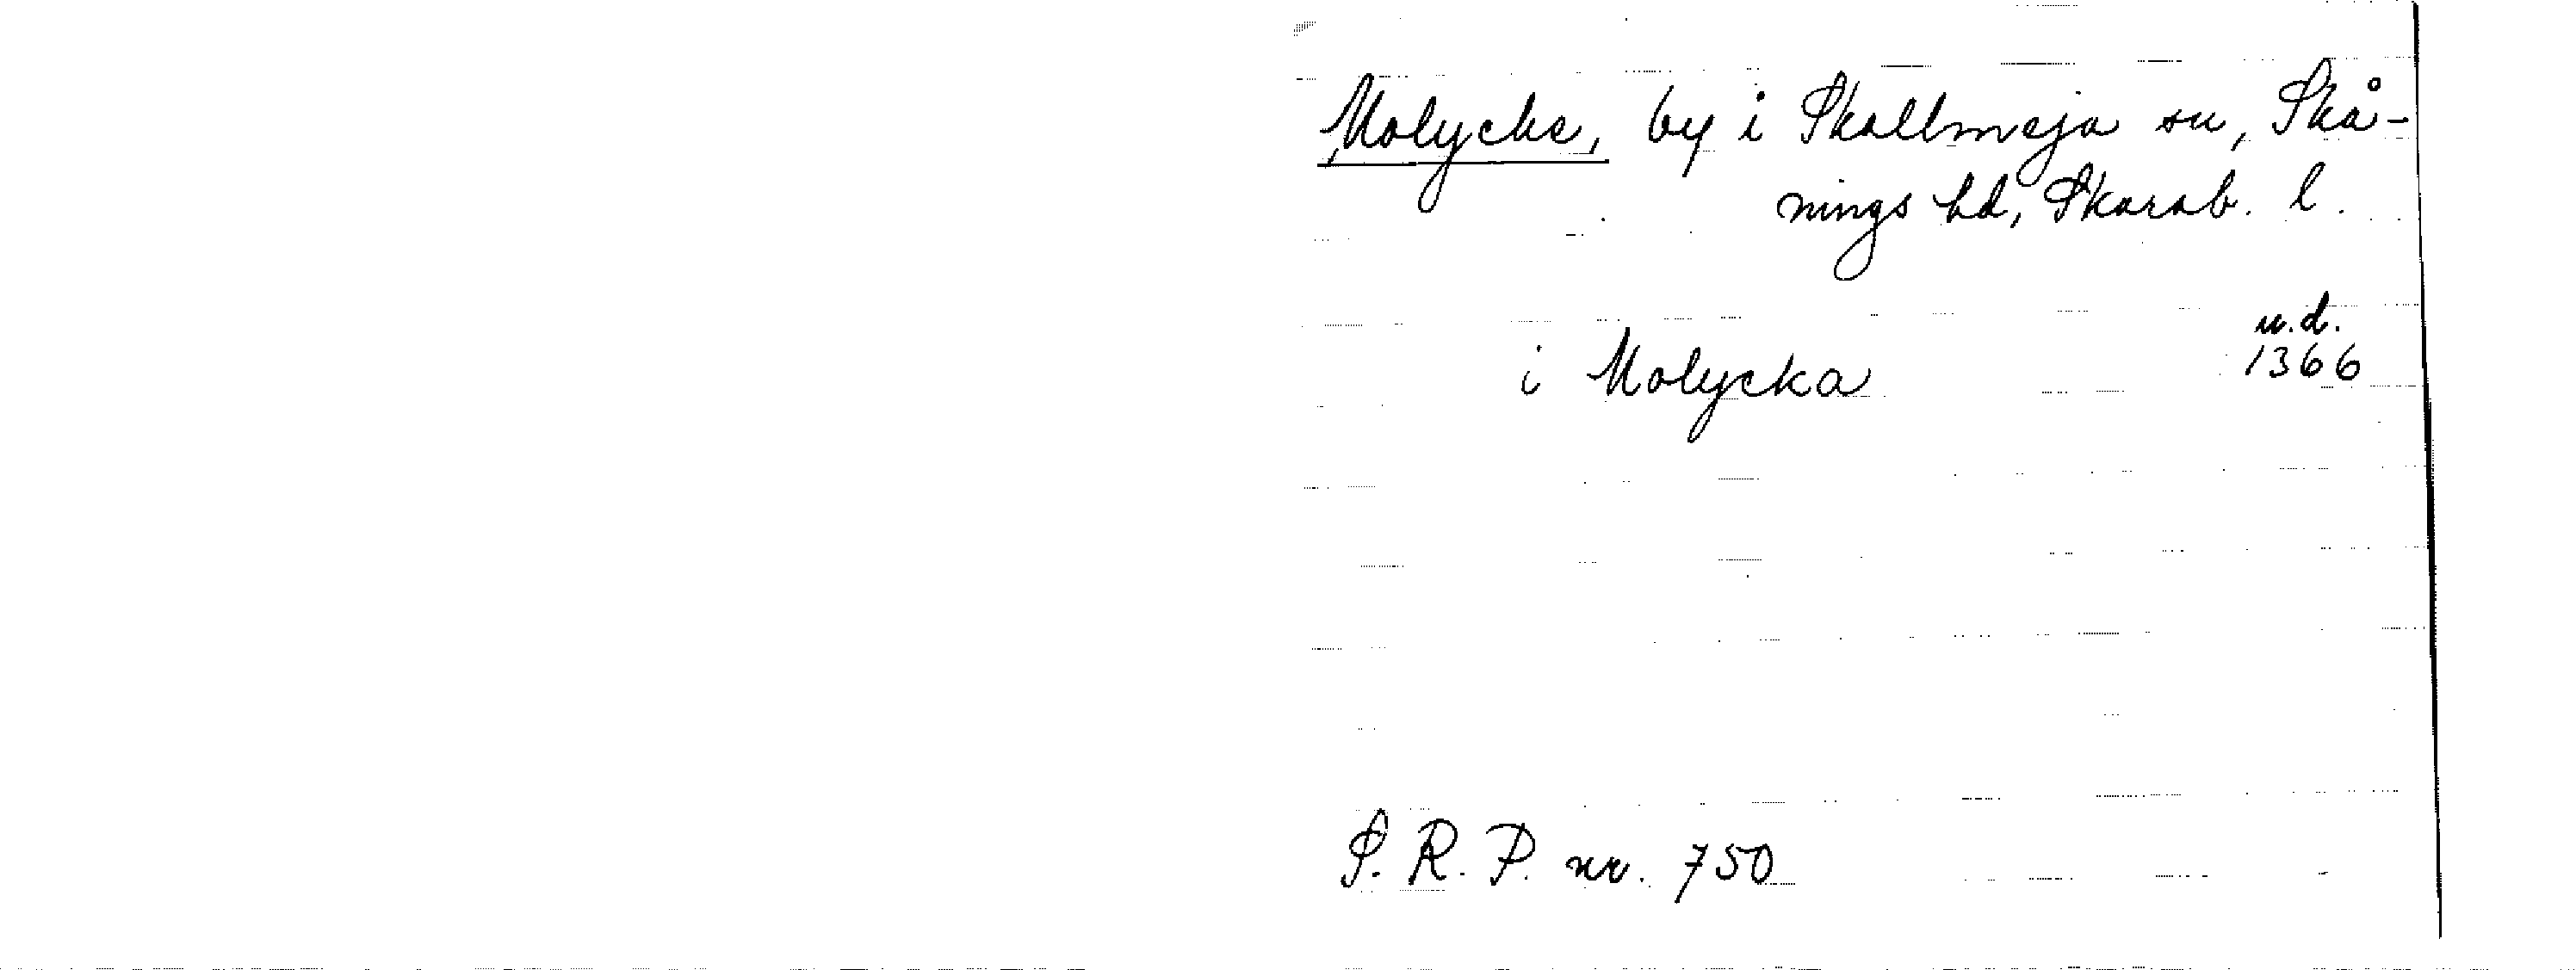 Molycke, by i Skallmeja sn, Skå-
nings hd, Skarab. l.
u.d.
i Molycka 1366
S. R. P. nr. 750